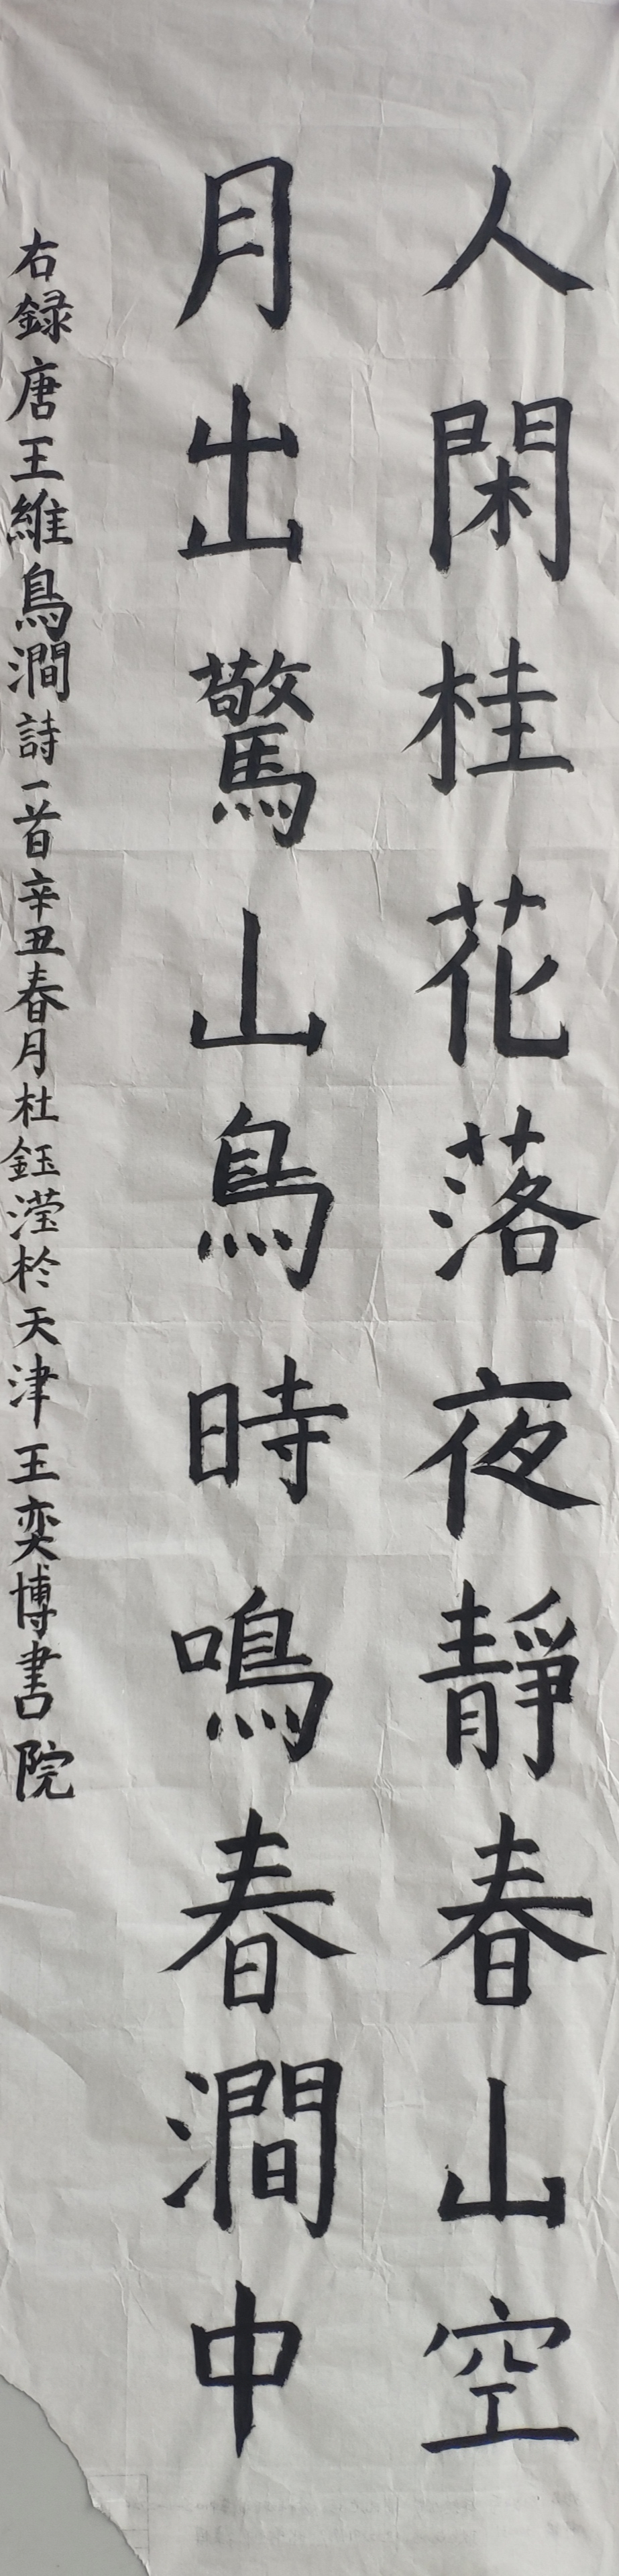 人閑桂花落夜靜春山空
月出驚山鳥時鳴春澗中
右録唐王維鳥澗詩一首辛丑春月杜鈺滢於天津王奕博書院